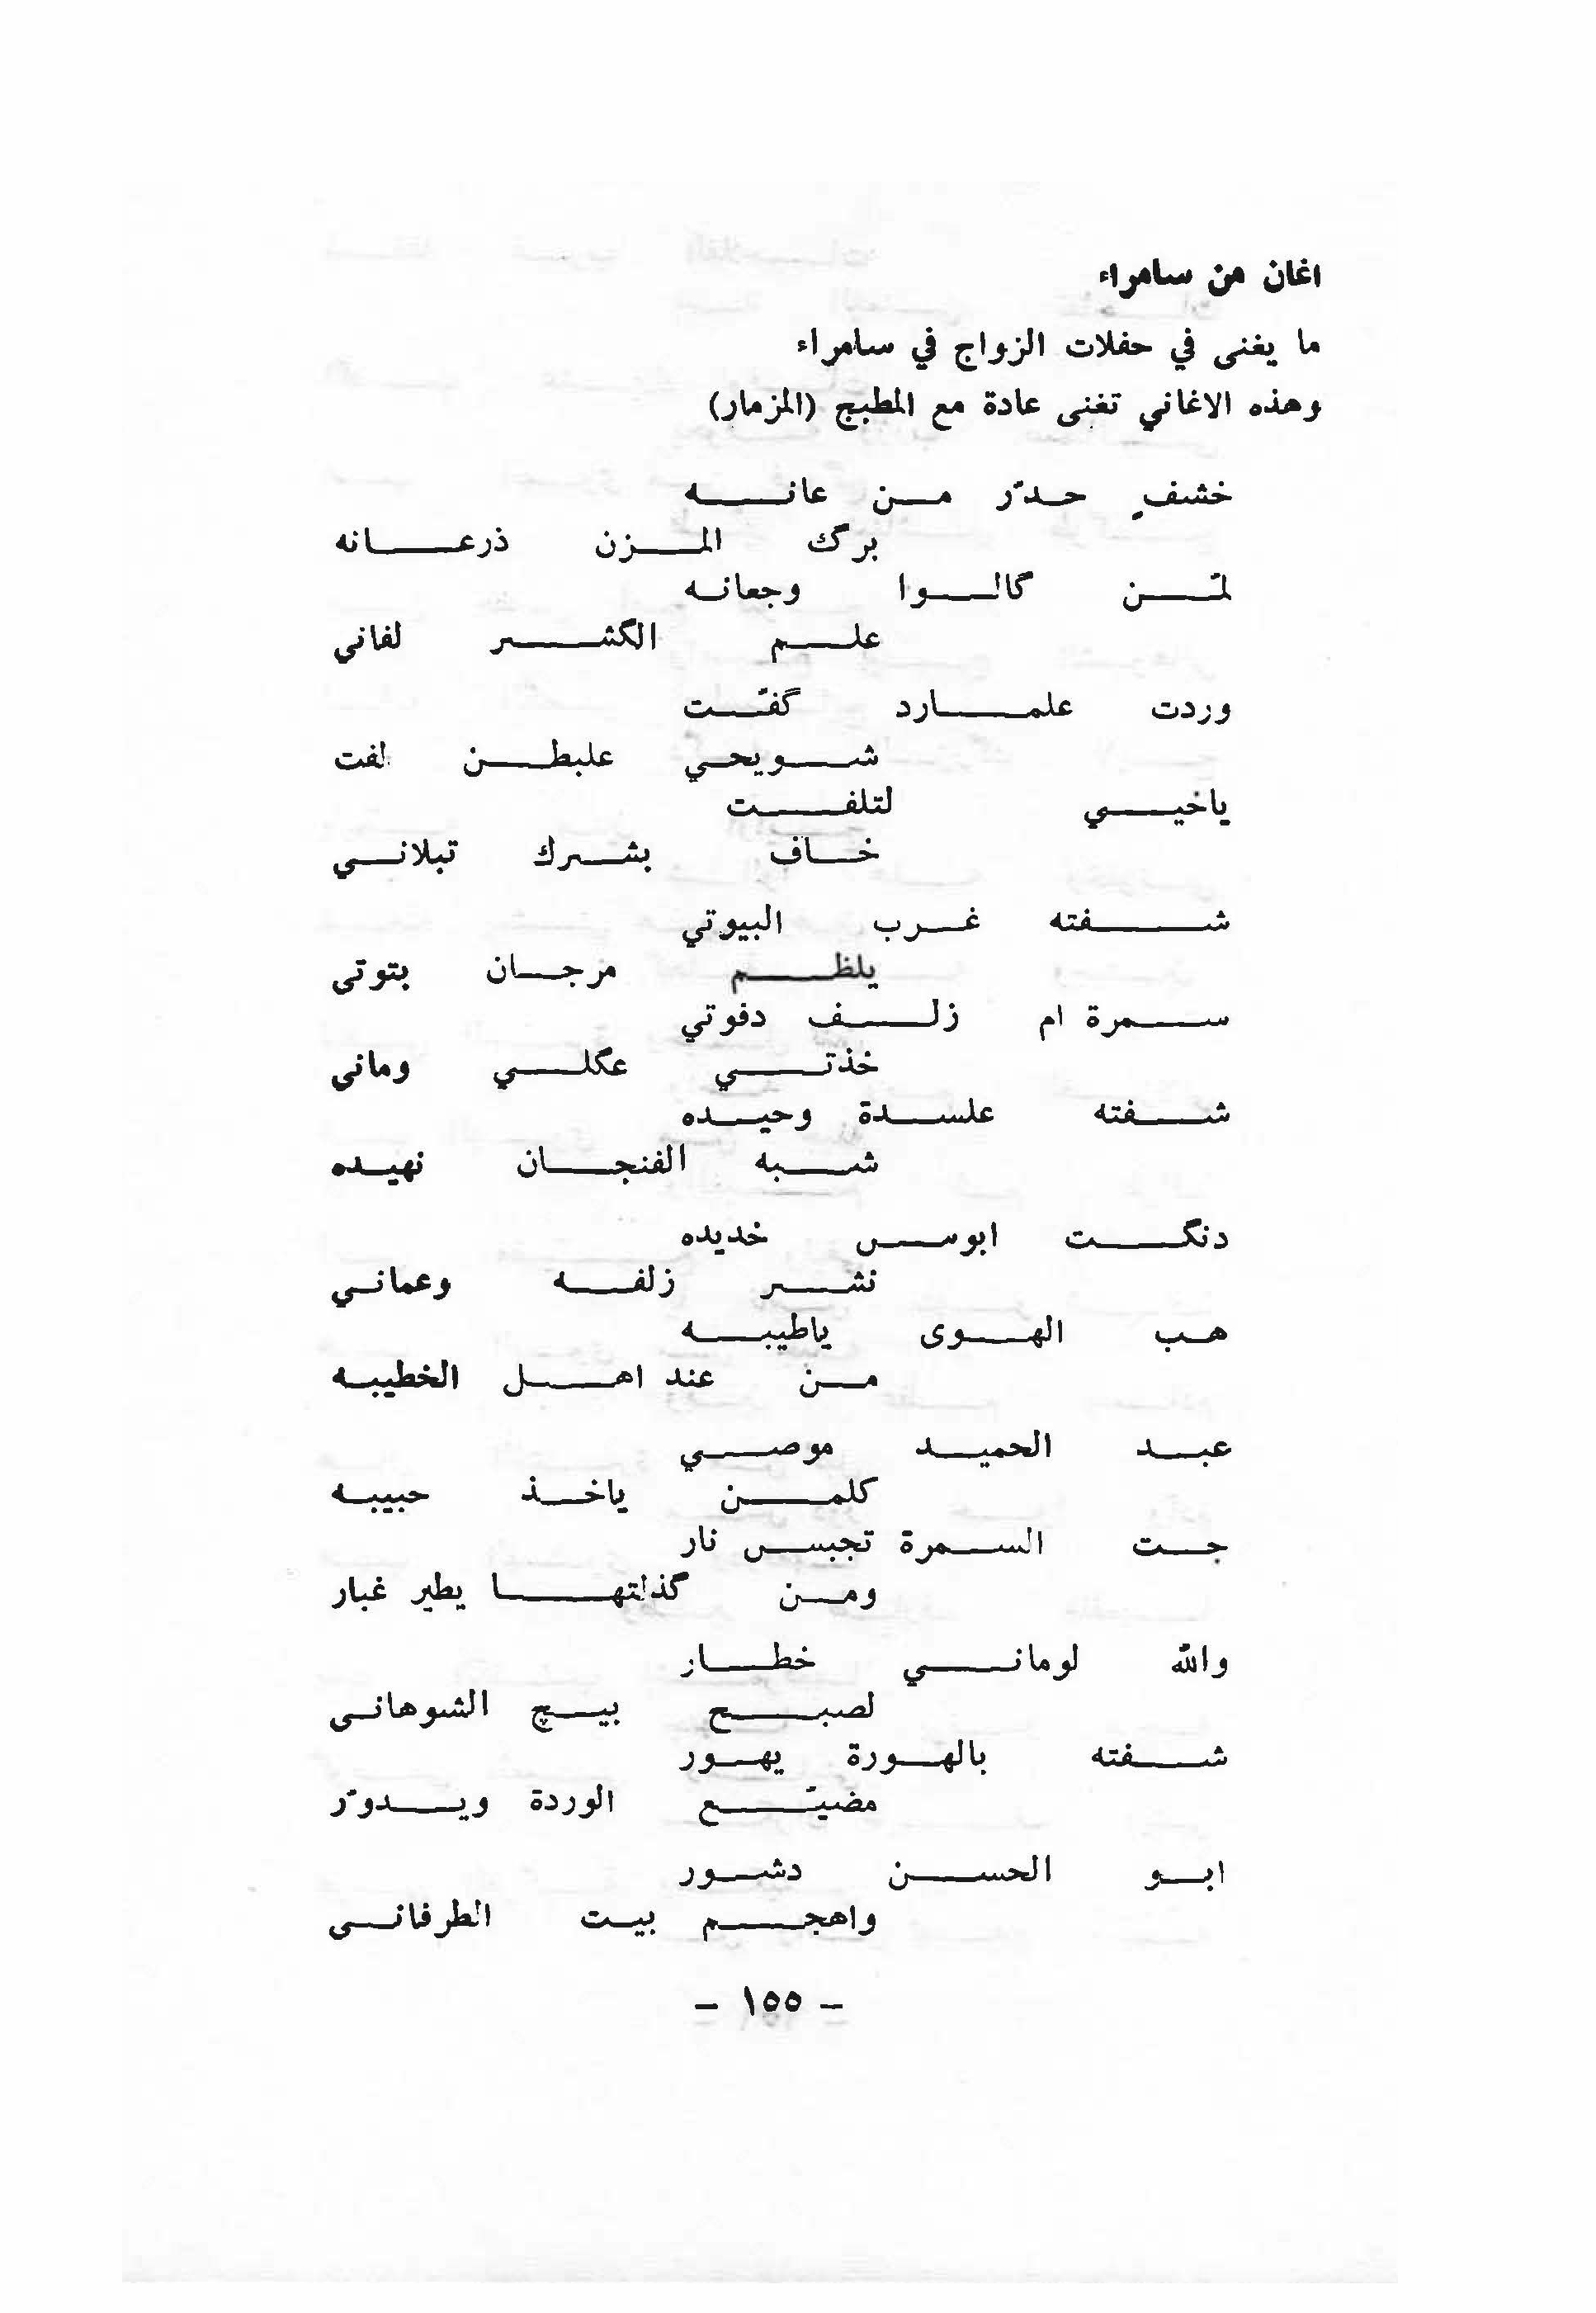 اغان من سامراء
ما يغنى في حفلات الزواج في سامراء
وهذه الاغاني تغنى عادة مع المطبج (المزمار)
خشفٍ حدّر من عانه
برگ المزن ذرعانه
لمّن گالوا وجعانه
علم الگشر لفاني
وردت علمارد گفّت
شويحي علبطن لفت
ياخيي لتلفت
خاف بشرك تبلاني
شفته غرب البيوتي
يلظم مرجان بتوتى
سمرة ام زلف دفوتي
خذتي عگلي وماني
شفته علسدة وحيده
شبه الفنجان نهيده
دنگت ابوس خديده
نشر زلفه وعماني
هب الهوى ياطيبه
من عند اهل الخطيبه
عبد الحميد موصي
كلمن ياخذ حبيبه
جت السمرة تجبس نار
ومن گذلتها يطير غبار
والله لوماني خطار
لصبح بيچ الشوهاني
شفته بالهورة يهور
مضيّع الوردة ويدوّر
ابو الحسن دشور
واهجم بيت الطرفاني
- ١٥٥ -